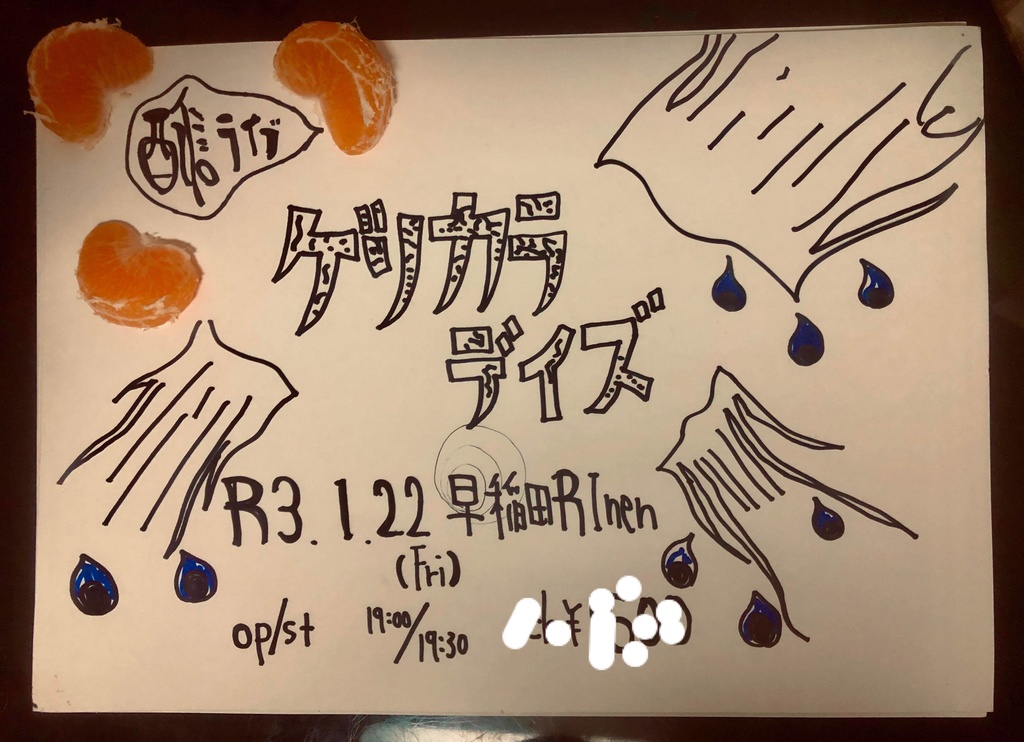 ライブ
ゲリカラ
デイズ
R3.1.22 早稲田RInen
(Fri)
op/st 19:00/19:30